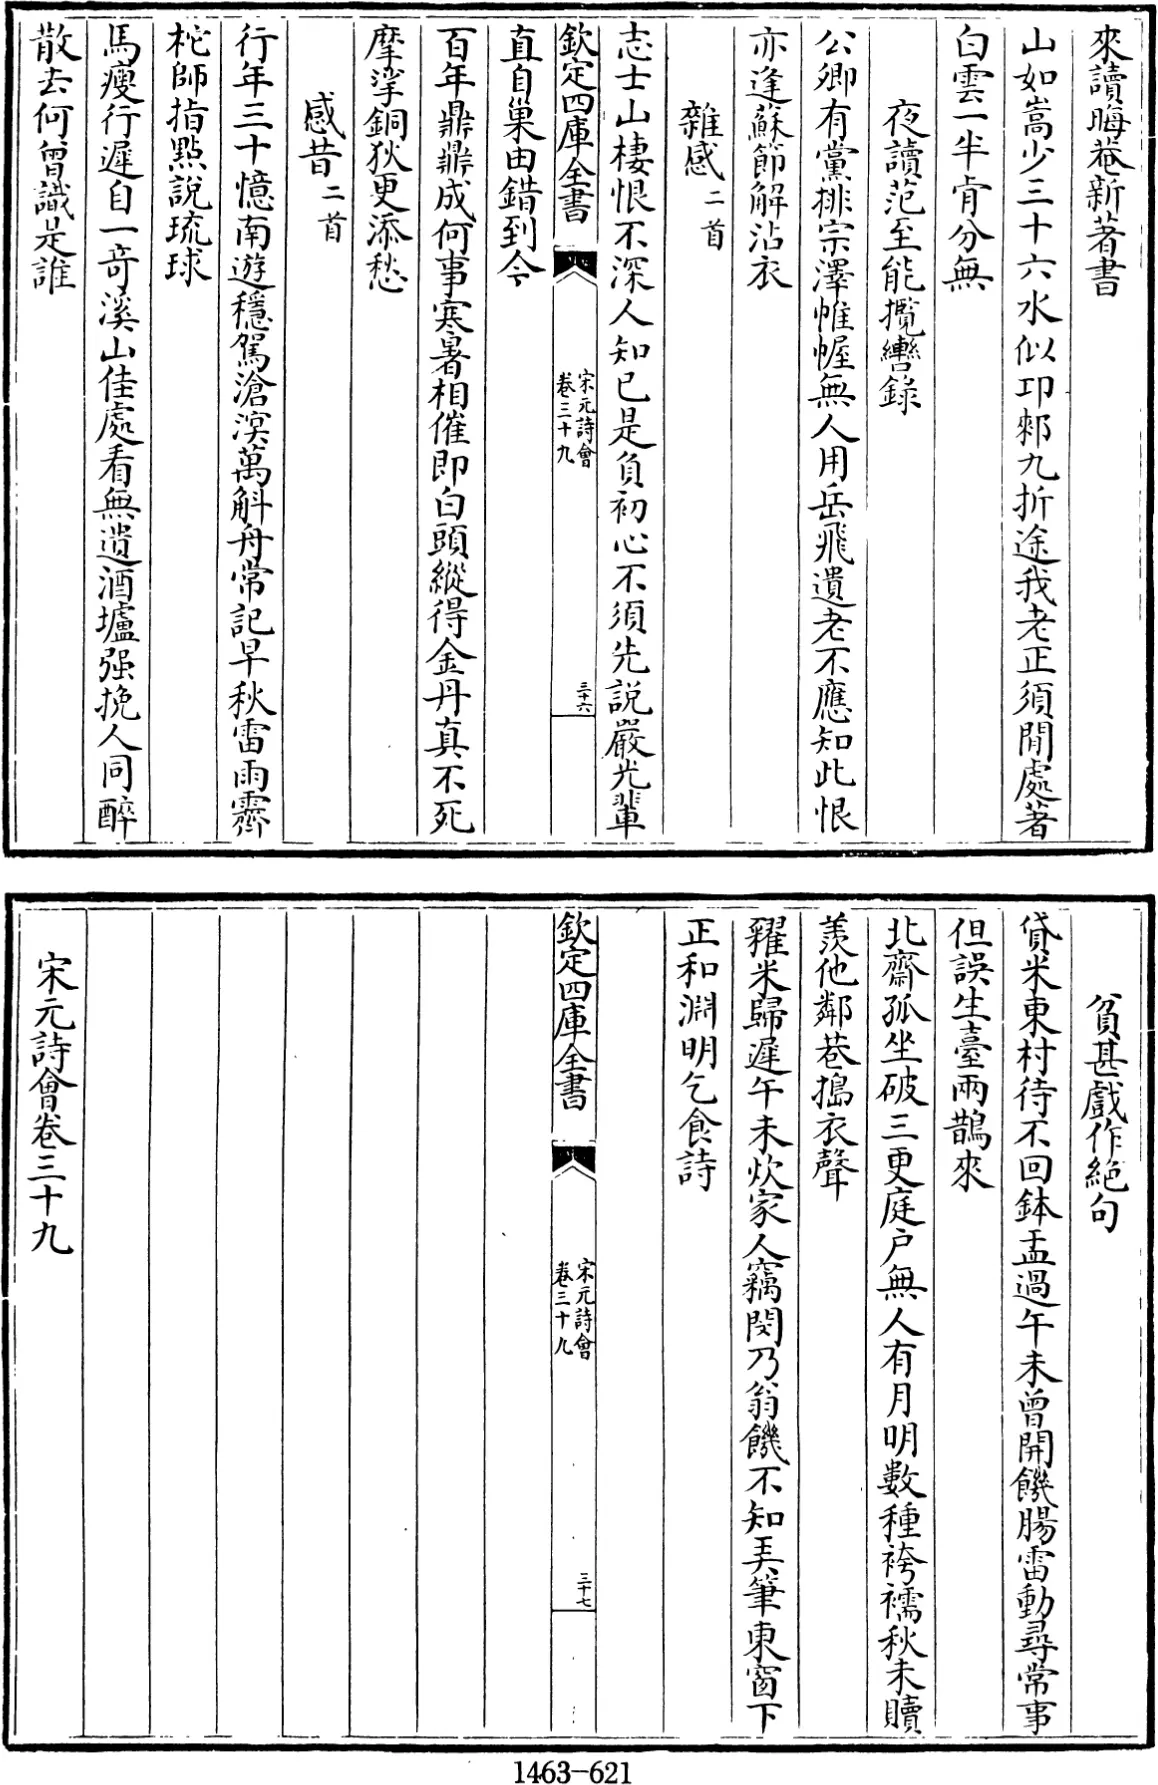 來讀晦菴新著書
山如嵩少三十六水似邛郲九折途我老正須閒處著
白雲一半肯分無
夜讀范至能攬轡錄
公卿有黨排宗澤帷幄無人用岳飛遺老不應知此恨
亦逢蘇節解沾衣
雜感二首
志士山棲恨不深人知已是負初心不須先說嚴光輩
欽定四庫全書
宋元詩會
卷三十九
三十六
直自巢由錯到今
百年鼎鼎成何事寒暑相催即白頭縱得金丹真不死
摩挲銅狄更添愁
感昔二首
行年三十憶南遊穩駕滄溟萬斛舟常記早秋雷雨霽
柁師指點說琉球
馬瘦行遲自一奇溪山佳處看無遺酒壚强挽人同醉
散去何曾識是誰
貧甚戲作絕句
貸米東村待不回鉢盂過午未曾開饑腸雷動尋常事
但誤生臺兩鵲來
北齋孤坐破三更庭户無人有月明數種袴襦秋未贖
羨他鄰巷搗衣聲
糴米歸遲午未炊家人竊閔乃翁饑不知弄筆東窗下
正和淵明乞食詩
欽定四庫全書
宋元詩會
卷三十九
三十七
宋元詩會卷三十九
1463-621